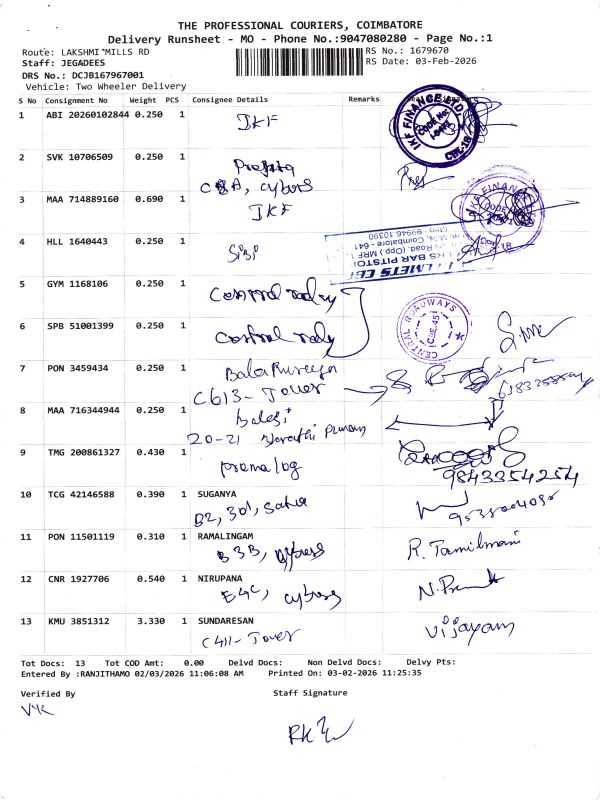 THE PROFESSIONAL COURIERS, COIMBATORE
Delivery Runsheet - MO - Phone No.:9047080280 - Page No.:1
Route: LAKSHMI MILLS RD
RS No.: 1679670
Staff: JEGADEES
RS Date: 03-Feb-2026
DRS No.: DCJB167967001
Vehicle: Two Wheeler Delivery
S No Consignment No Weight PCS Consignee Details Remarks
1 ABI 20260102844 0.250 1 IKF
IKF FINANCE LTD.
CODE No.
CBE-18
2 SVK 10706509 0.250 1
C8A, cybers
3 MAA 714889160 0.690 1 IKF
IKF FINANCE
4 HLL 1640443 0.250 1
RS BAR PITSTO
Road, (Opp) MRF
Coimbatore - 641
99946 10390
5 GYM 1168106 0.250 1 Central roadway
6 SPB 51001399 0.250 1 Central rody
CENTRAL ROADWAYS
CBE-45
7 PON 3459434 0.250 1
C613- Tower
8 MAA 716344944 0.250 1 Balaji
20-21
9 TMG 200861327 0.430 1
9843354254
10 TCG 42146588 0.390 1 SUGANYA
B2, 301,
11 PON 11501119 0.310 1 RAMALINGAM
B3B, cybers
R. Tamilmani
12 CNR 1927706 0.540 1 NIRUPANA
E4C, cybers
13 KMU 3851312 3.330 1 SUNDARESAN
C411- Tower
Vijayam
Tot Docs: 13 Tot COD Amt: 0.00 Delvd Docs: Non Delvd Docs: Delvy Pts:
Entered By :RANJITHAMO 02/03/2026 11:06:08 AM Printed On: 03-02-2026 11:25:35
Verified By Staff Signature